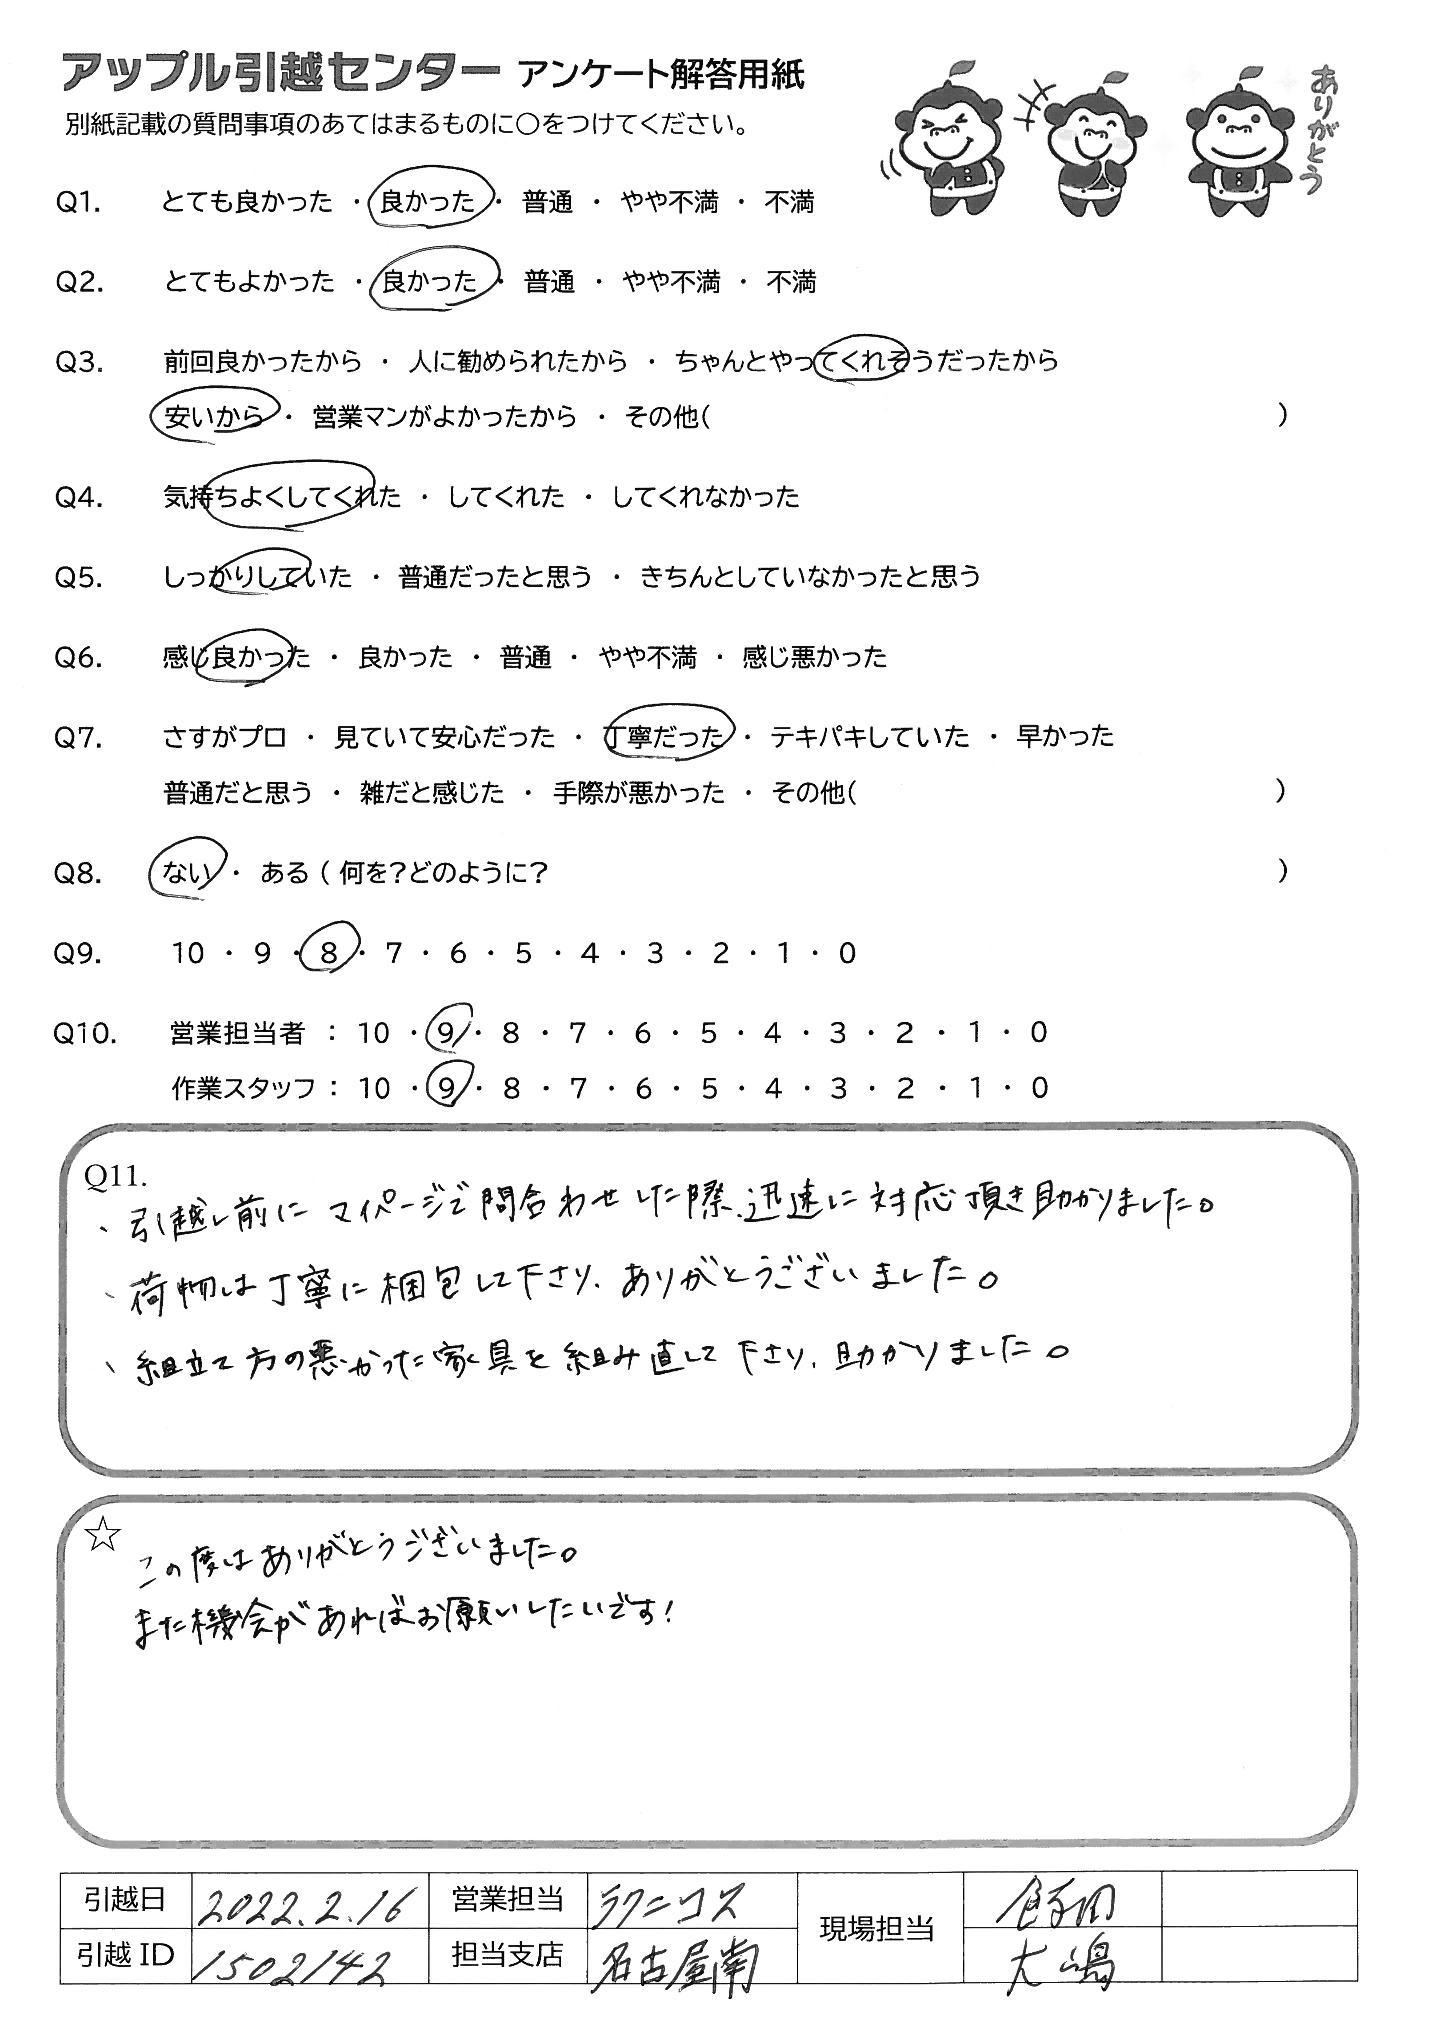 アップル引越センター アンケート解答用紙
別紙記載の質問事項のあてはまるものに○をつけてください。
ありがとう
Q1. とても良かった ・ 良かった ・ 普通 ・ やや不満 ・ 不満
Q2. とてもよかった ・ 良かった ・ 普通 ・ やや不満 ・ 不満
Q3. 前回良かったから ・ 人に勧められたから ・ ちゃんとやってくれそうだったから
安いから ・ 営業マンがよかったから ・ その他( )
Q4. 気持ちよくしてくれた ・ してくれた ・ してくれなかった
Q5. しっかりしていた ・ 普通だったと思う ・ きちんとしていなかったと思う
Q6. 感じ良かった ・ 良かった ・ 普通 ・ やや不満 ・ 感じ悪かった
Q7. さすがプロ ・ 見ていて安心だった ・ 丁寧だった ・ テキパキしていた ・ 早かった
普通だと思う ・ 雑だと感じた ・ 手際が悪かった ・ その他( )
Q8. ない ・ ある ( 何を?どのように? )
Q9. 10 ・ 9 ・ 8 ・ 7 ・ 6 ・ 5 ・ 4 ・ 3 ・ 2 ・ 1 ・ 0
Q10. 営業担当者 : 10 ・ 9 ・ 8 ・ 7 ・ 6 ・ 5 ・ 4 ・ 3 ・ 2 ・ 1 ・ 0
作業スタッフ : 10 ・ 9 ・ 8 ・ 7 ・ 6 ・ 5 ・ 4 ・ 3 ・ 2 ・ 1 ・ 0
Q11.
、引越し前に マイページで問合わせした際、迅速に対応頂き助かりました。
、荷物は丁寧に梱包して下さり、ありがとうございました。
、組立て方の悪かった家具を組み直して下さり、助かりました。
☆
この度はありがとうございました。
また機会があればお願いしたいです!
引越日 2022.2.16 営業担当 ラワニコス 現場担当 飯田
引越ID 1502142 担当支店 名古屋南 大嶋